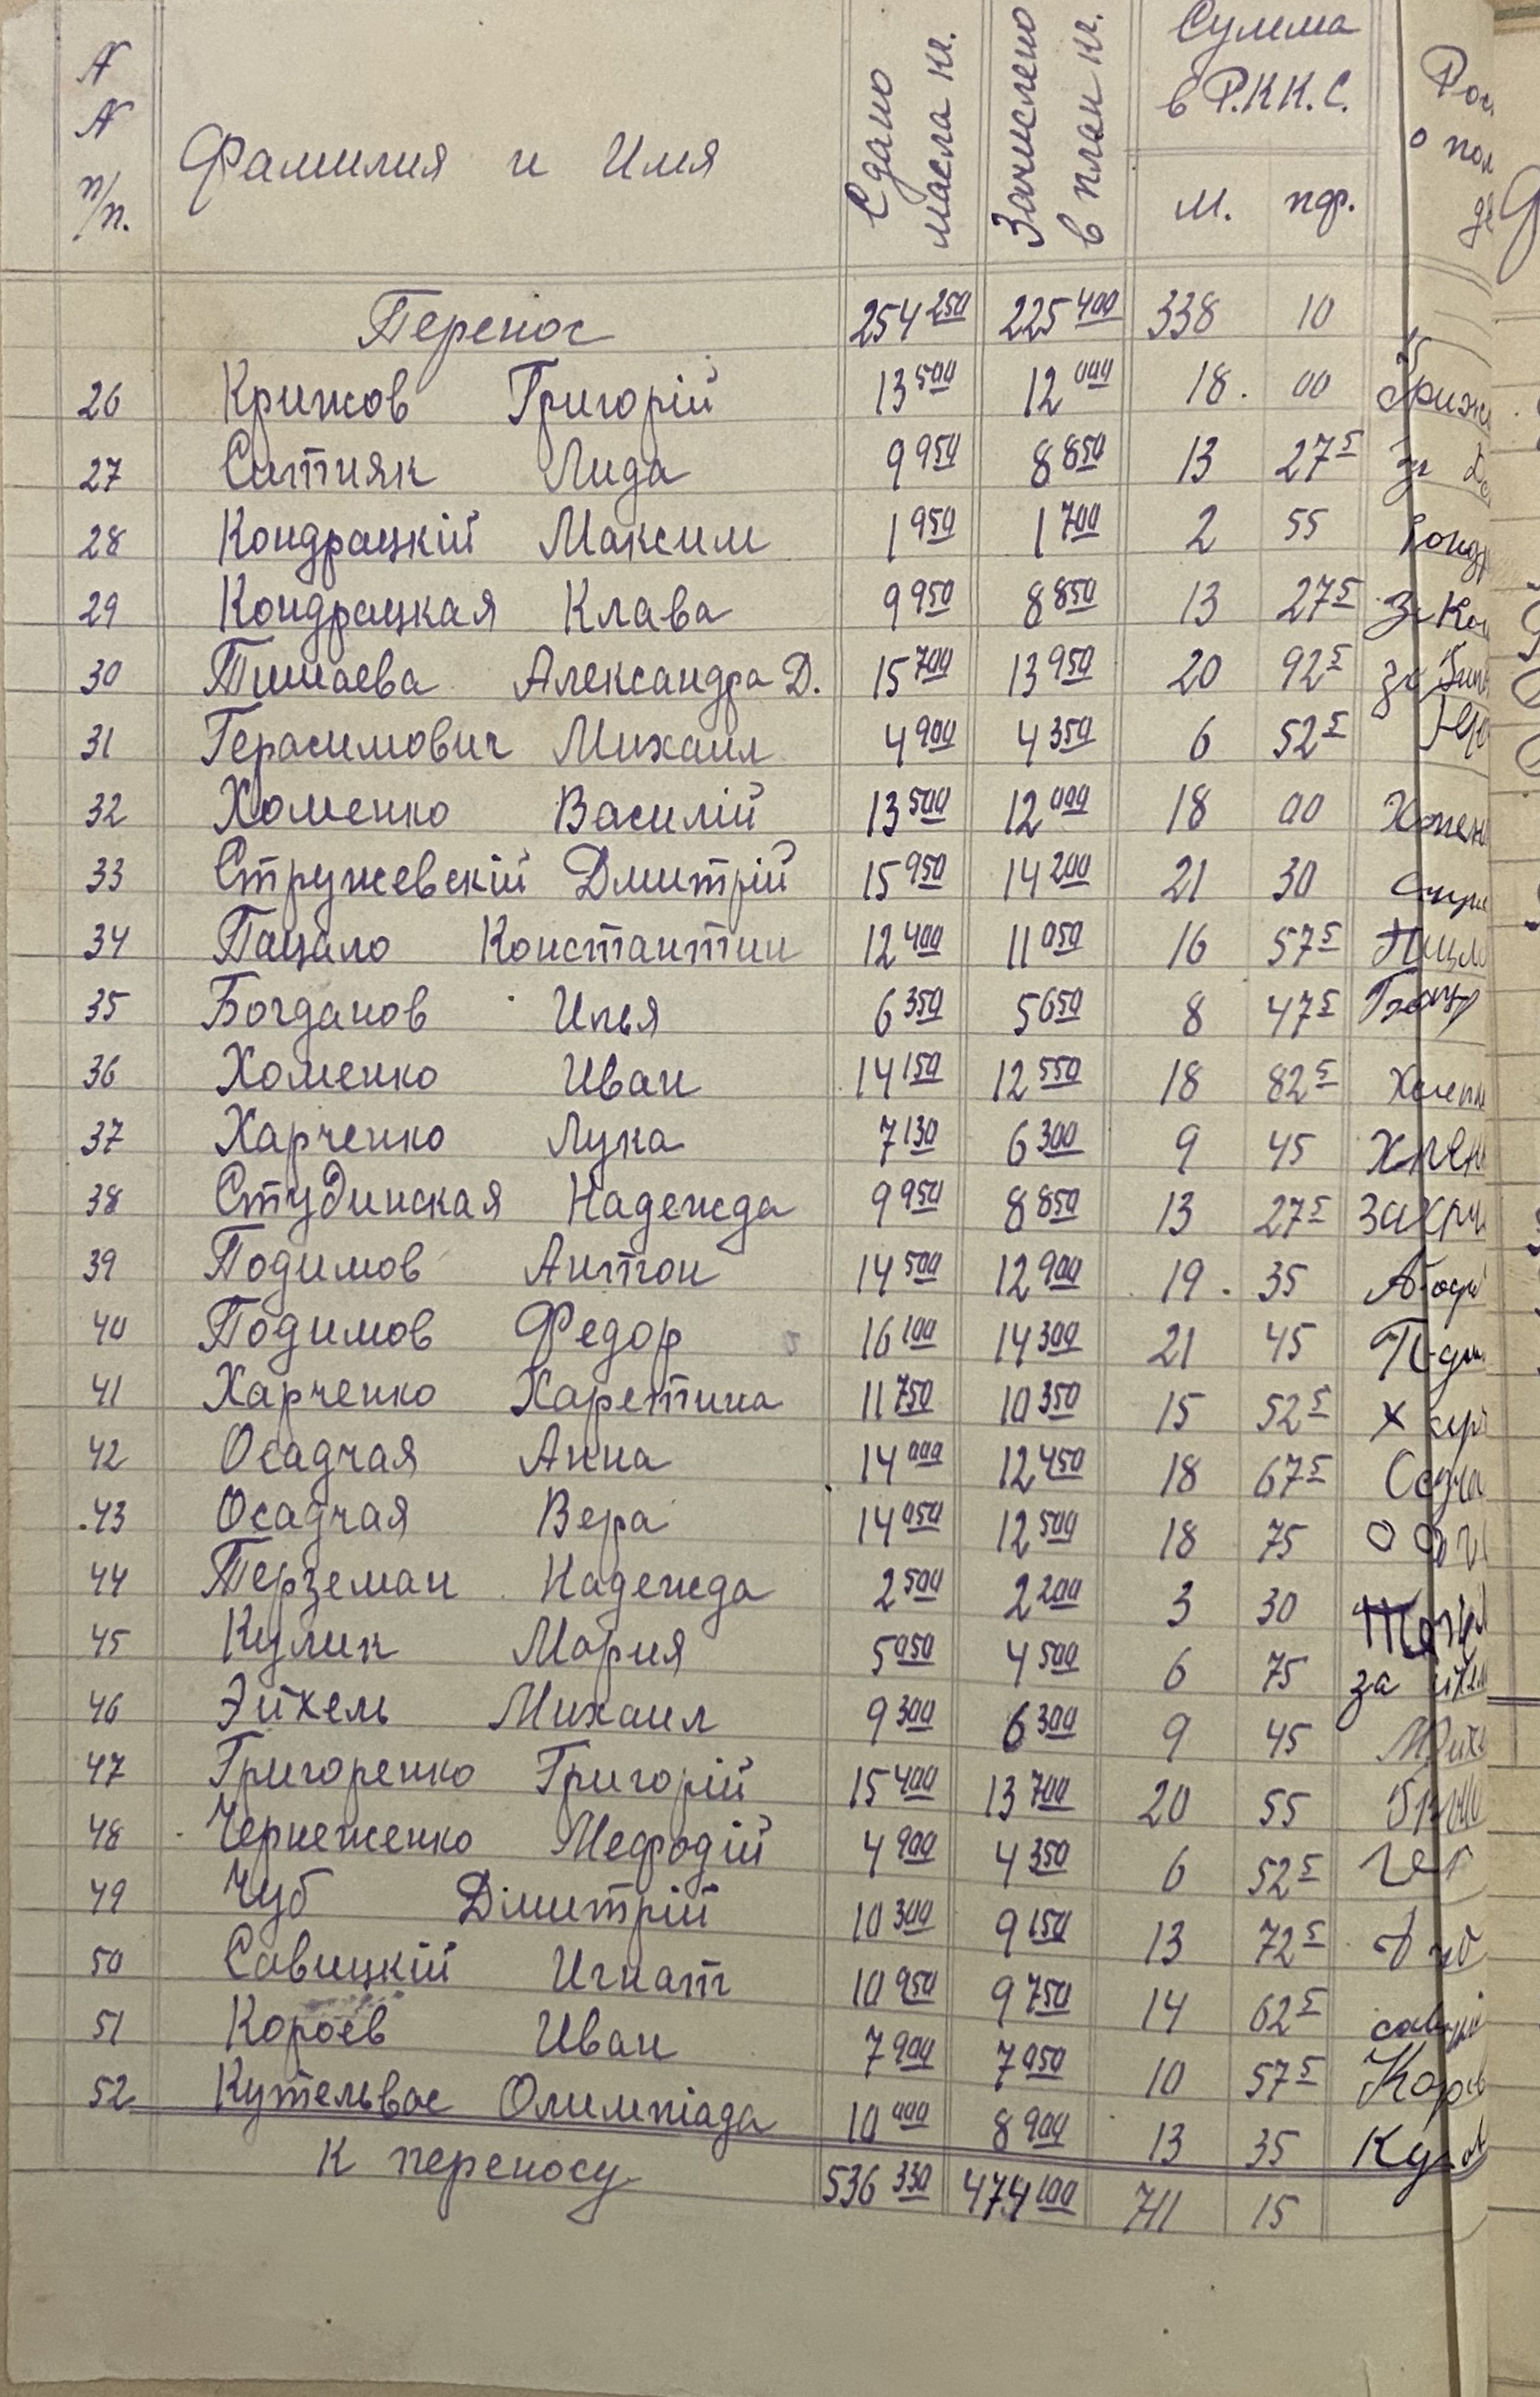 N N п/п. Фамилия и Имя Сдано масла кг. Зачислено в план кг. Сумма в Р.К.К.С. м. пф.
Перенос 254 250 225 400 338 10
26 Крижов Григорій 13 500 12 000 18. 00
27 Ситняк Лида 9 950 8 850 13 27 5
28 Кондрацкій Максим 1 950 1 700 2 55
29 Кондрацкая Клава 9 950 8 850 13 27 5
30 Тинаева Александра Д. 15 700 13 950 20 92 5
31 Герасимович Михаил 4 900 4 350 6 52 5
32 Хоменко Василій 13 500 12 000 18 00
33 Стружевскій Дмитрій 15 950 14 200 21 30
34 Пацало Константин 12 400 11 050 16 57 5
35 Богданов Илья 6 350 5 650 8 47 5
36 Хоменко Иван 14 150 12 550 18 82 5
37 Харченко Лука 7 130 6 300 9 45
38 Студинская Надежда 9 950 8 850 13 27 5
39 Подимов Антон 14 500 12 900 19. 35
40 Подимов Федор 16 100 14 300 21 45
41 Харченко Харетина 11 750 10 350 15 52 5
42 Осадчая Анна 14 000 12 450 18 67 5
43 Осадчая Вера 14 050 12 500 18 75
44 Терземан Надежда 2 500 2 200 3 30
45 Кулик Мария 5 050 4 500 6 75
46 Эйхель Михаил 9 300 6 300 9 45
47 Григоренко Григорій 15 400 13 700 20 55
48 Чернеженко Мефодій 4 900 4 350 6 52 5
49 Чуб Дмитрій 10 300 9 150 13 72 5
50 Савицкій Игнат 10 950 9 750 14 62 5
51 Короев Иван 7 900 7 050 10 57 5
52 Кутельвас Олимпіада 10 000 8 900 13 35
К переносу 536 330 474 100 711 15